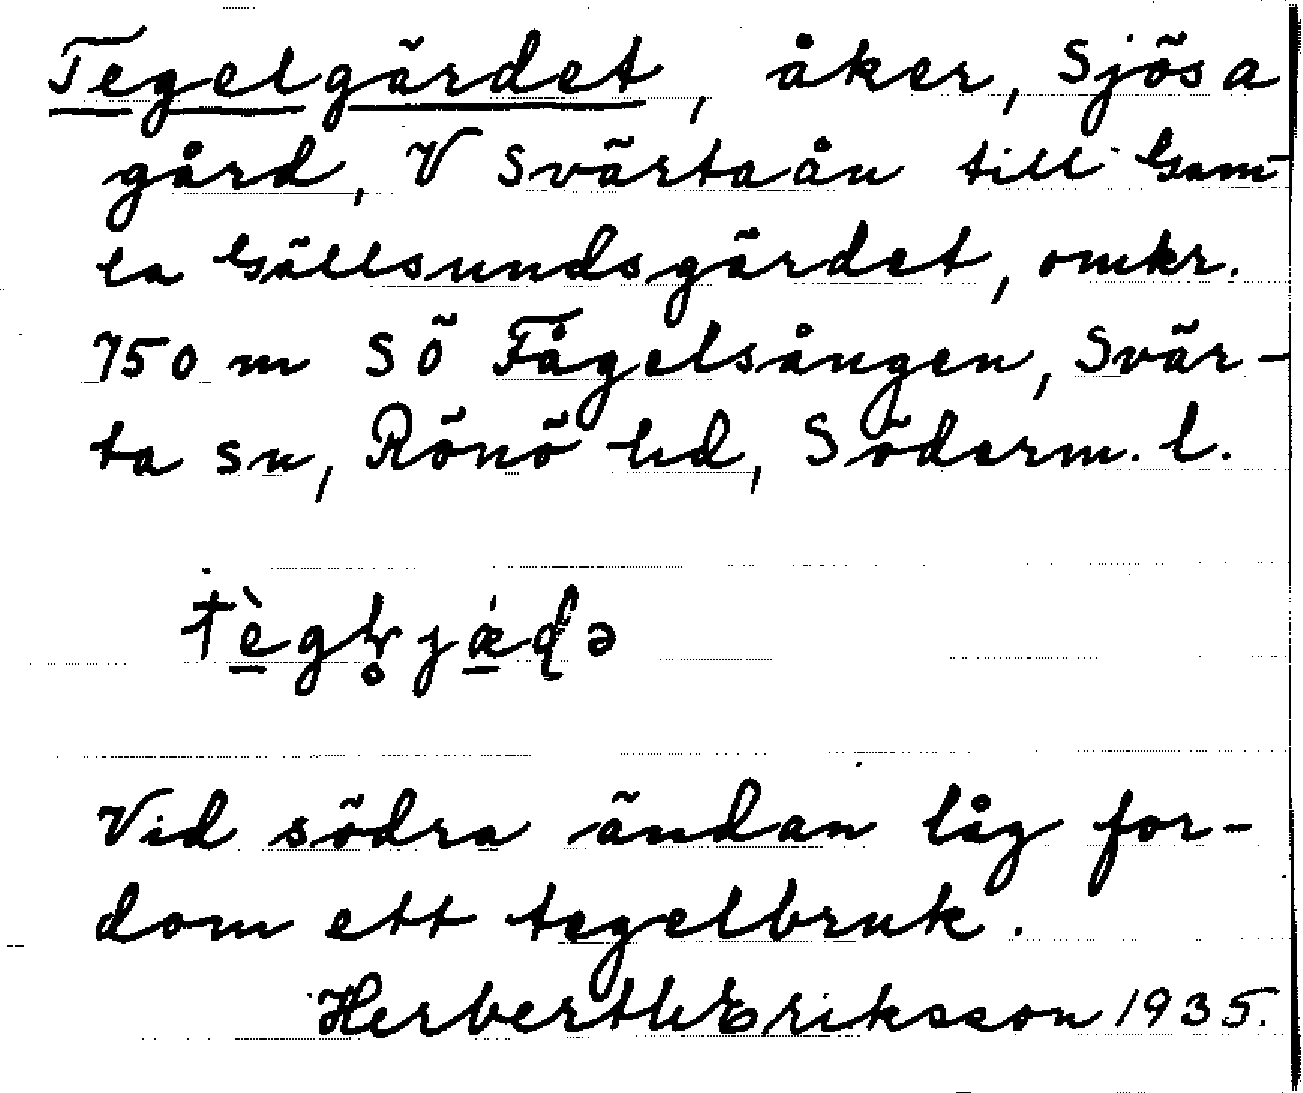 Tegelgärdet, åker, Sjösa
gård, V Svärtaån till Gam-
la Gällsundsgärdet, omkr.
750 m SÖ Fågelsången, Svär-
ta sn, Rönö hd, Söderm. l.
Vid södra ändan låg for-
dom ett tegelbruk.
Herberth Eriksson 1935.